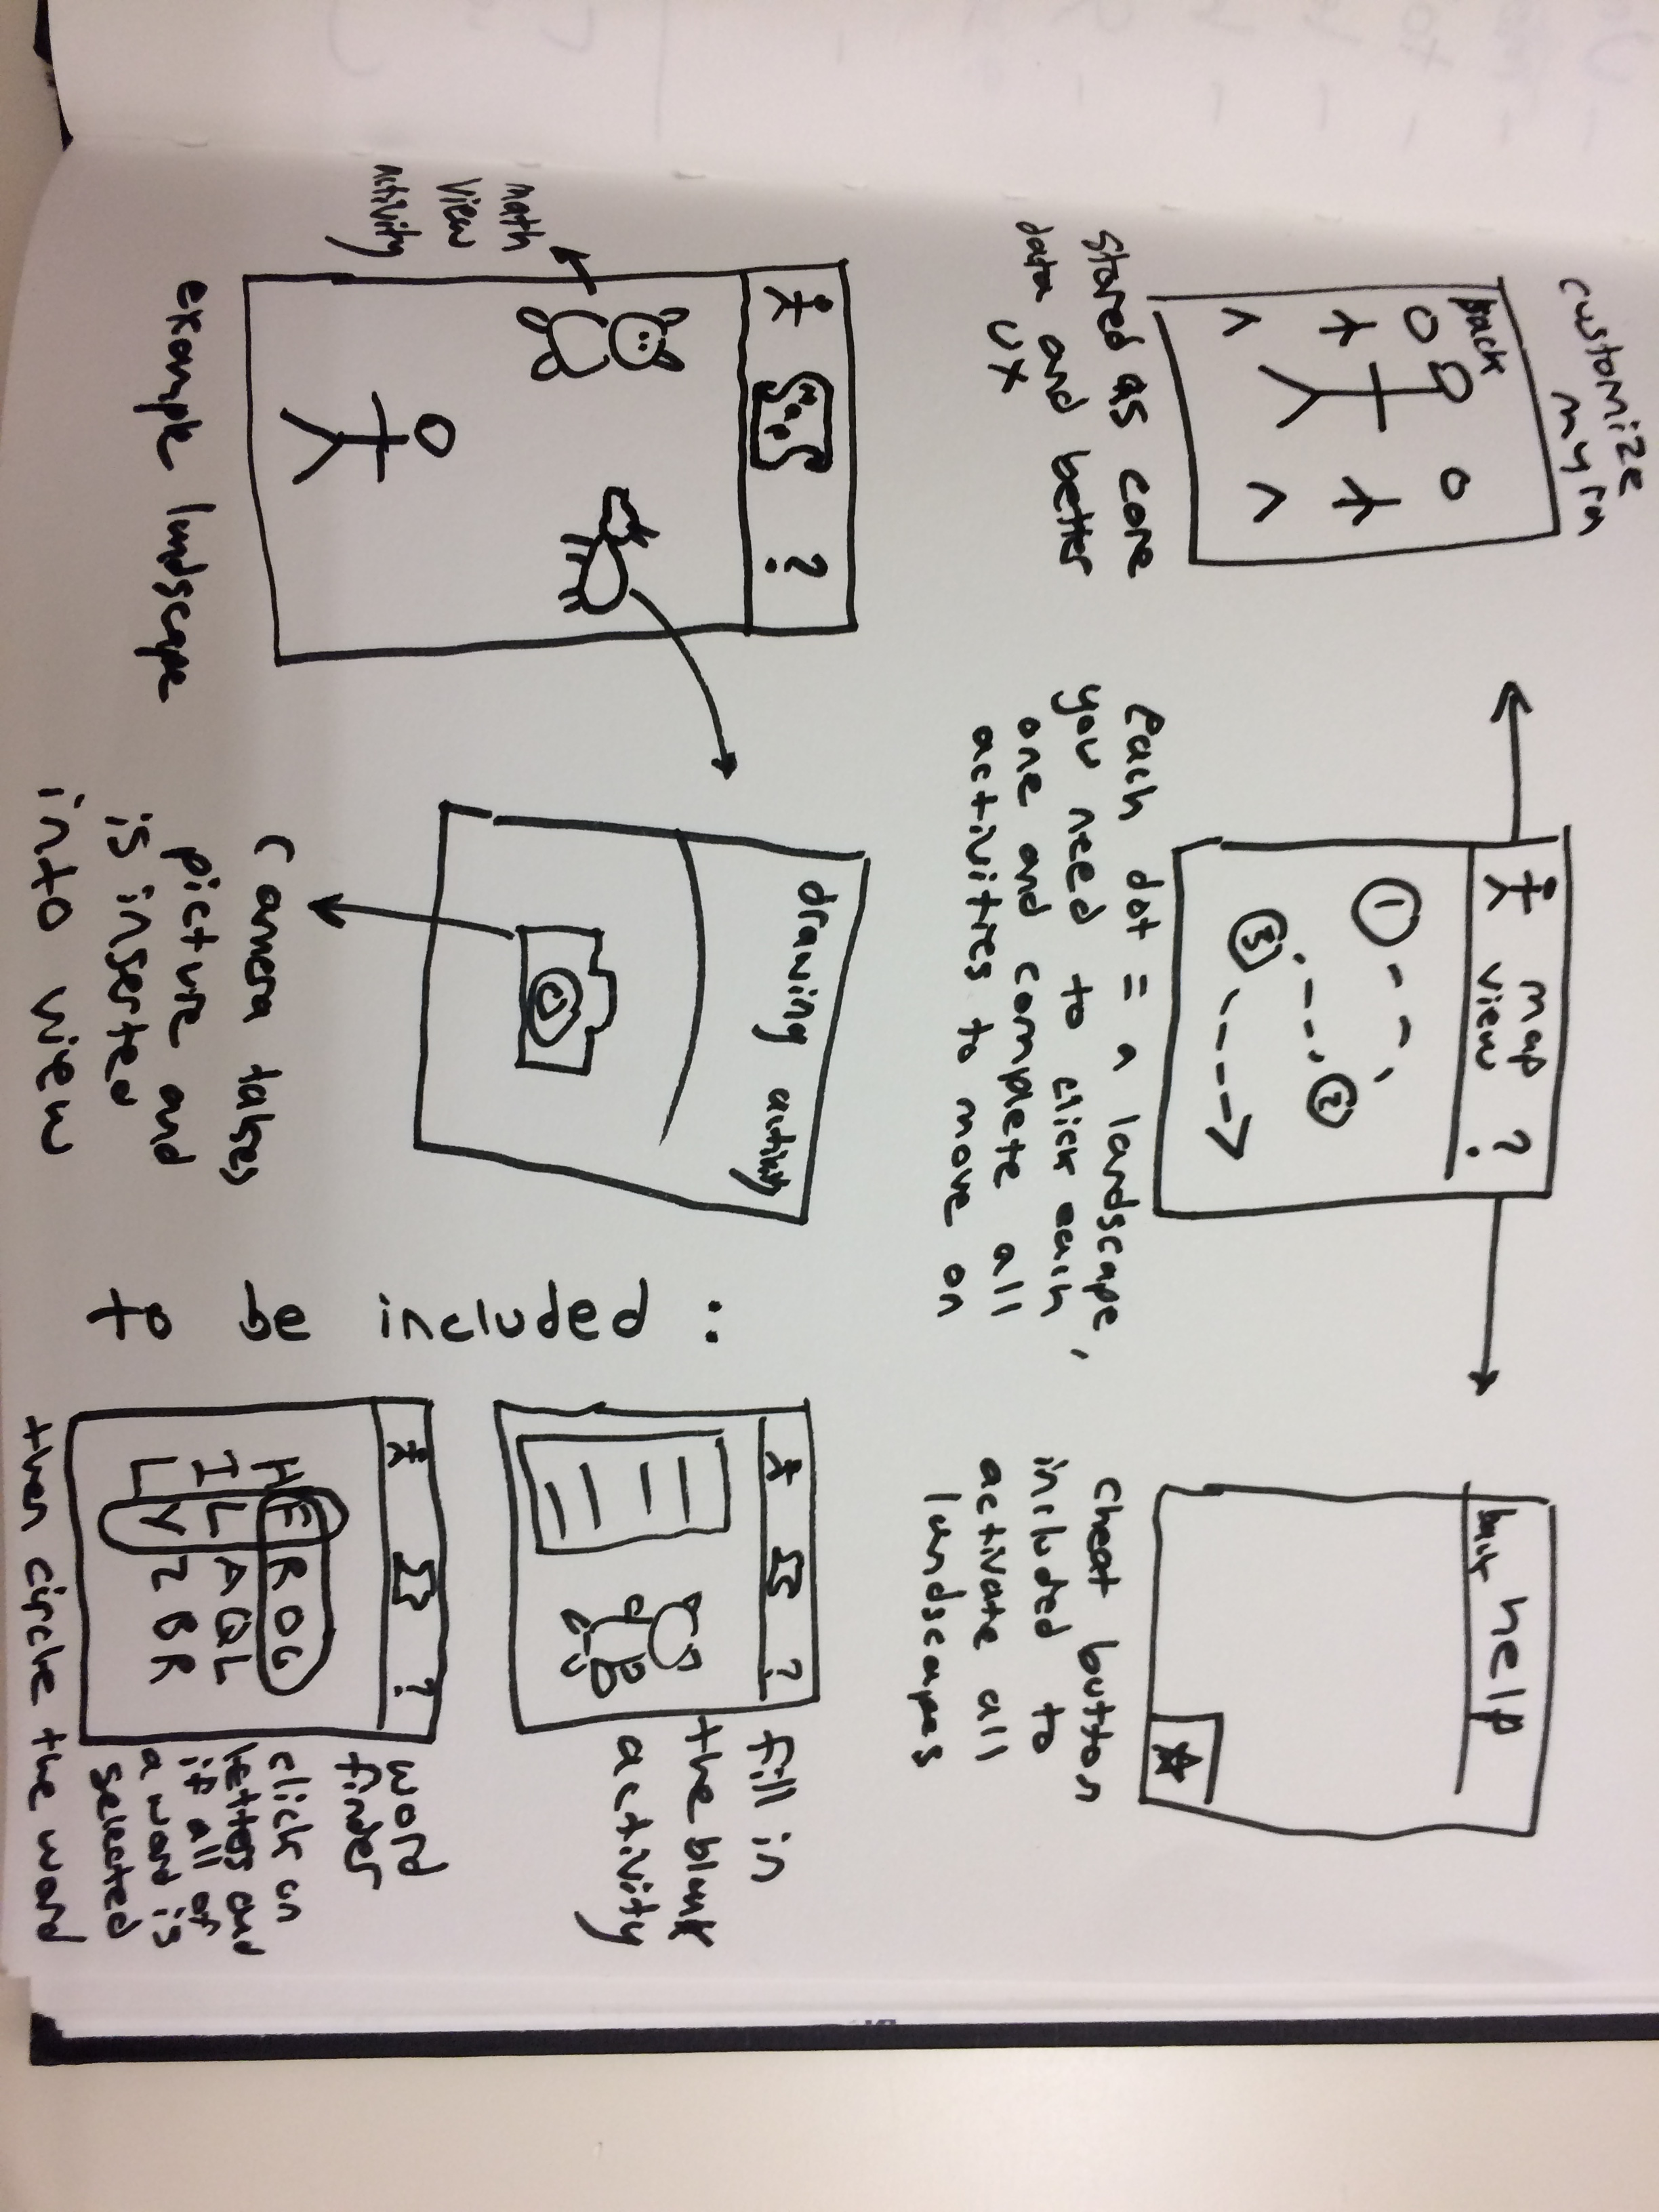 customize
back
stored as core
data and better
UX
map ?
view
1
2
3
Each dot = a landscape,
you need to click each
one and complete all
activities to move on
back help
cheat button
included to
activate all
landscapes
map ?
math
view
activity
example landscape
drawing activity
Camera takes
picture and
is inserted
into view
to be included :
?
fill in
the blank
activity
?
H E R O G
I L A Q L
L Y Z B R
word
finder
click on
letters and
if all of
a word is
selected
then circle the word